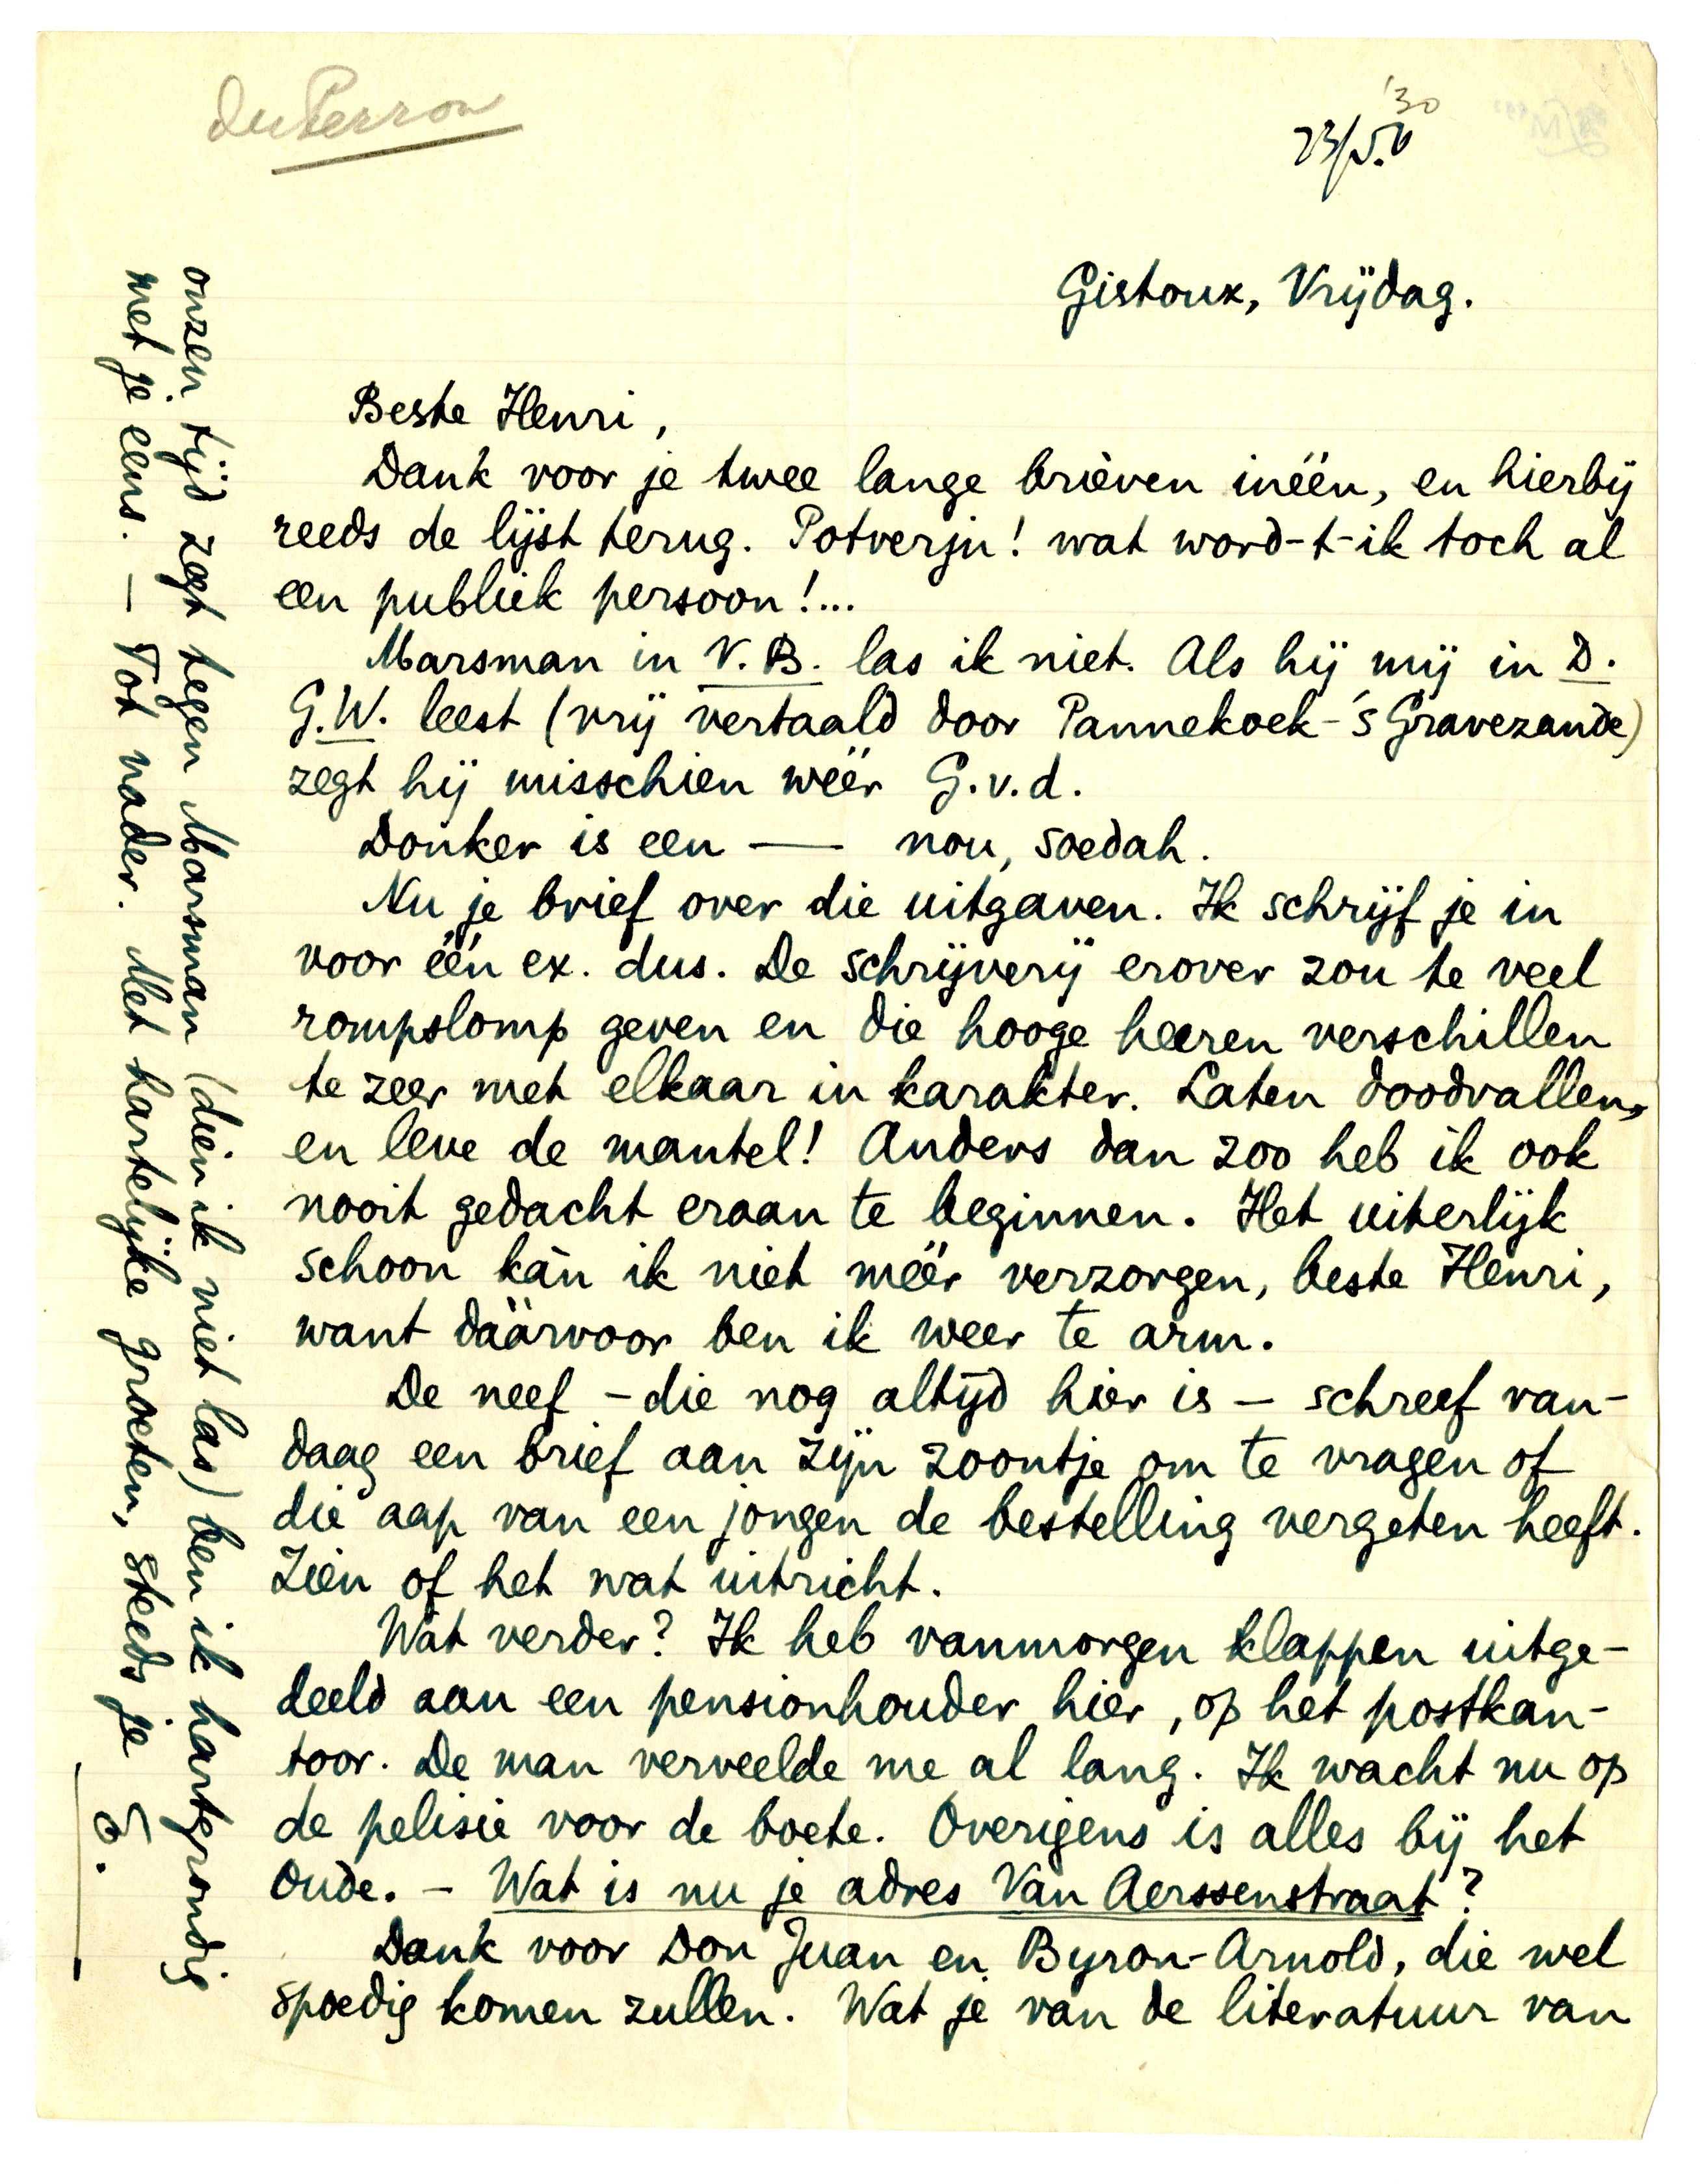 du Perron
'30
23/5.
Gistoux, Vrijdag.
Beste Henri,
Dank voor je twee lange brieven inéén, en hierbij
reeds de lijst terug. Potverju! wat word-t-ik toch al
een publiek persoon!...
Marsman in V.B. las ik niet. Als hij mij in D.
G.W. leest (vrij vertaald door Pannekoek-'s Gravezande)
zegt hij misschien wéér G.v.d.
Donker is een — nou, soedah.
Nu je brief over die uitgaven. Ik schrijf je in
voor één ex. dus. De schrijverij erover zou te veel
rompslomp geven en die hooge heeren verschillen
te zeer met elkaar in karakter. Laten doodvallen,
en leve de mantel! Anders dan zoo heb ik ook
nooit gedacht eraan te beginnen. Het uiterlijk
schoon kàn ik niet méér verzorgen, beste Henri,
want dáárvoor ben ik weer te arm.
De neef – die nog altijd hier is – schreef van-
daag een brief aan zijn zoontje om te vragen of
die aap van een jongen de bestelling vergeten heeft.
Zien of het wat uitricht.
Wat verder? Ik heb vanmorgen klappen uitge-
deeld aan een pensionhouder hier, op het postkan-
toor. De man verveelde me al lang. Ik wacht nu op
de pelisie voor de boete. Overigens is alles bij het
oude. – Wat is nu je adres Van Aerssenstraat?
Dank voor Don Juan en Byron-Arnold, die wel
spoedig komen zullen. Wat je van de literatuur van
onzen tijd zegt tegen Marsman (dien ik niet las) ben ik hartgrondig
met je eens. – Tot nader. Met hartelijke groeten, steeds je
E.